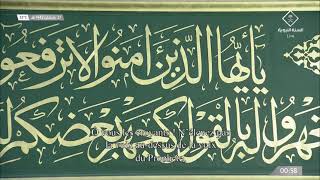 السنة النبوية
يأيها الذين امنوا لا ترفعوا
له بالقول كجهر بعضكم
Ô vous les croyants ! N'élevez pas
la voix au-dessus de la voix
du Prophète
00:58